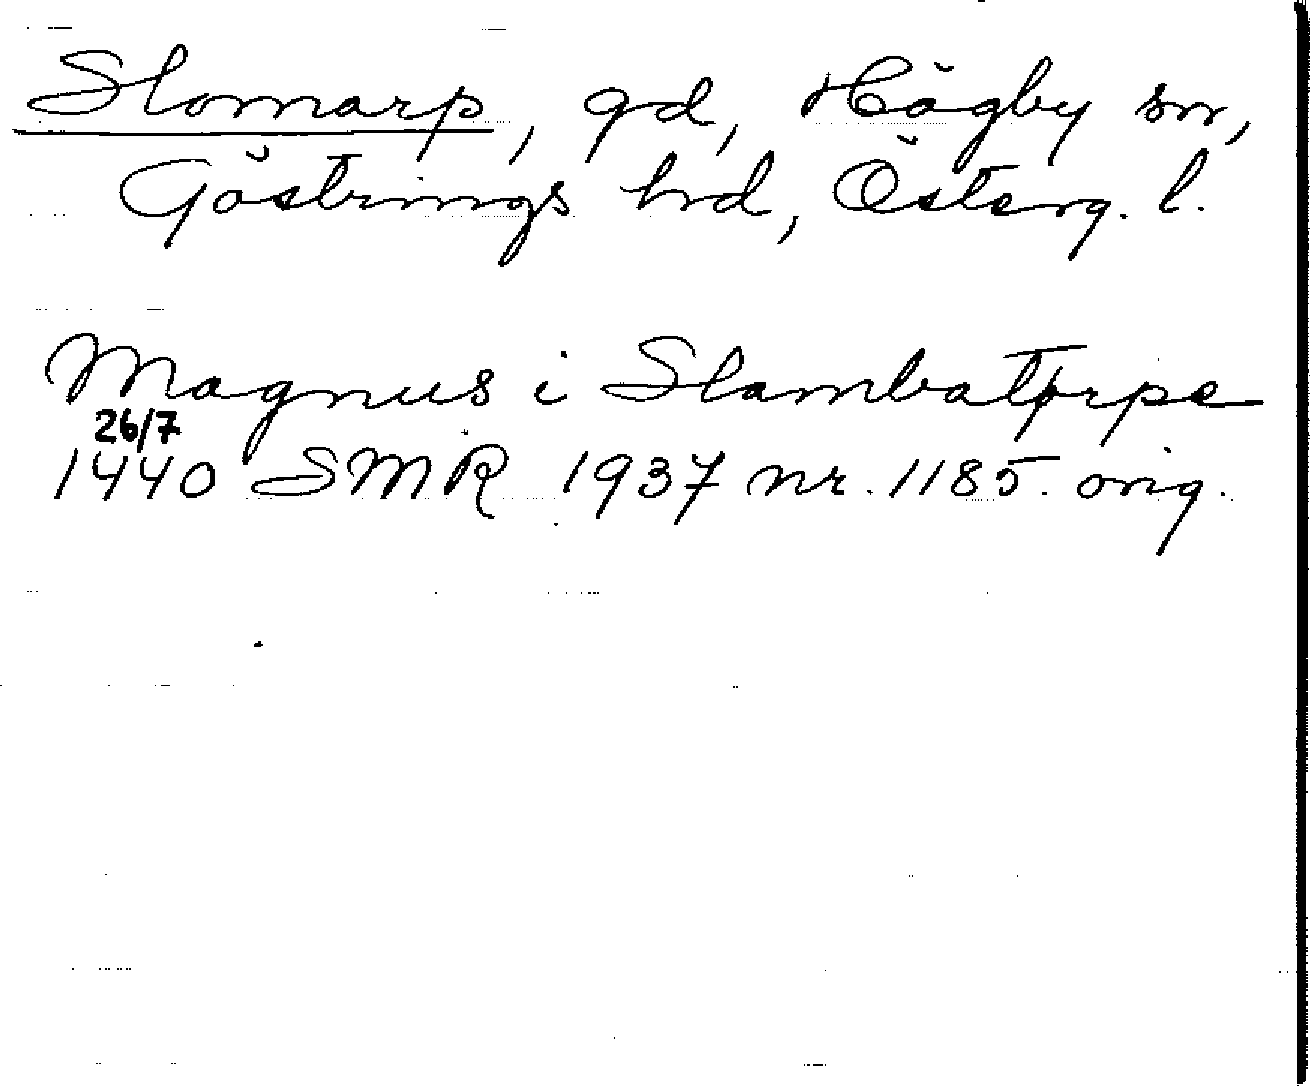 Slomarp, gd, Högby sn,
Göstrings hd, Österg. l.
Magnus i Slambatorpe
26/7
1440 SMR 1937 nr. 1185. orig.